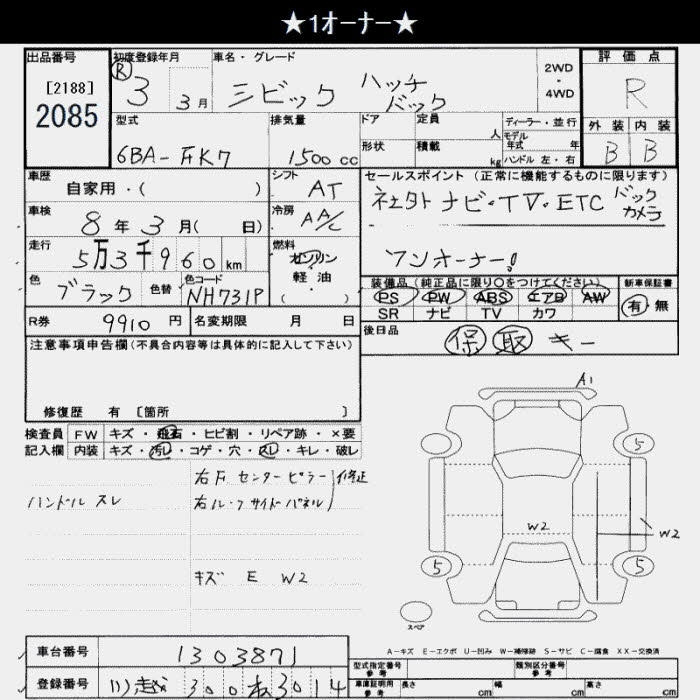 ★1オーナー★
出品番号
[2188]
2085
初度登録年月
R 3 3月
車名・グレード
シビック ハッチバック
2WD
・
4WD
評価点
R
型式
6BA-FK7
排気量
1500 cc
ドア
定員 人
ディーラー・並行
モデル年式 年
形状
積載 kg
ハンドル 左・右
外装
内装
B
B
車歴
自家用・( )
シフト
AT
車検
8年3月( 日)
冷房
AA/C
走行
5万3千960km
燃料
ガソリン
軽・油
( )
色
ブラック
色替
色コード
NH731P
R券
9910円
名変期限 月 日
セールスポイント(正常に機能するものに限ります)
社外ナビ・TV・ETC バックカメラ
ワンオーナー!
装備品(純正品に限り○をつけてください)
PS PW ABS エアB AW
SR ナビ TV カワ
新車保証書
有・無
後日品
保 取 キー
注意事項申告欄(不具合内容等は具体的に記入して下さい)
修復歴 有 〔箇所 〕
検査員
記入欄
FW キズ・飛石・ヒビ割・リペア跡・×要
内装 キズ・汚レ・コゲ・穴・スレ・キレ・破レ
ハンドル スレ
右F センターピラー
右ルーフサイドパネル
修正
キズ E W2
A1
5
W2
W2
5
5
スペア
A-キズ E-エクボ U-凹み W-補修跡 S-サビ C-腐食 XX-交換済
車台番号
1303871
登録番号
300 ね 3014
型式指定番号
参考
類別区分番号
参考
車庫証明用
参考
長さ cm
幅 cm
高さ cm